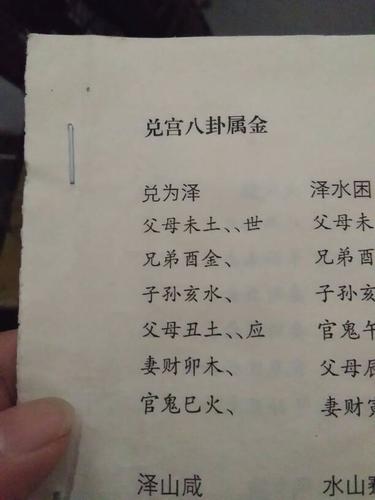 兑宫八卦属金
兑为泽 泽水困
父母未土、、世 父母未
兄弟酉金、 兄弟酉
子孙亥水、 子孙亥
父母丑土、、应 官鬼午
妻财卯木、 父母辰
官鬼巳火、 妻财寅
泽山咸 水山蹇